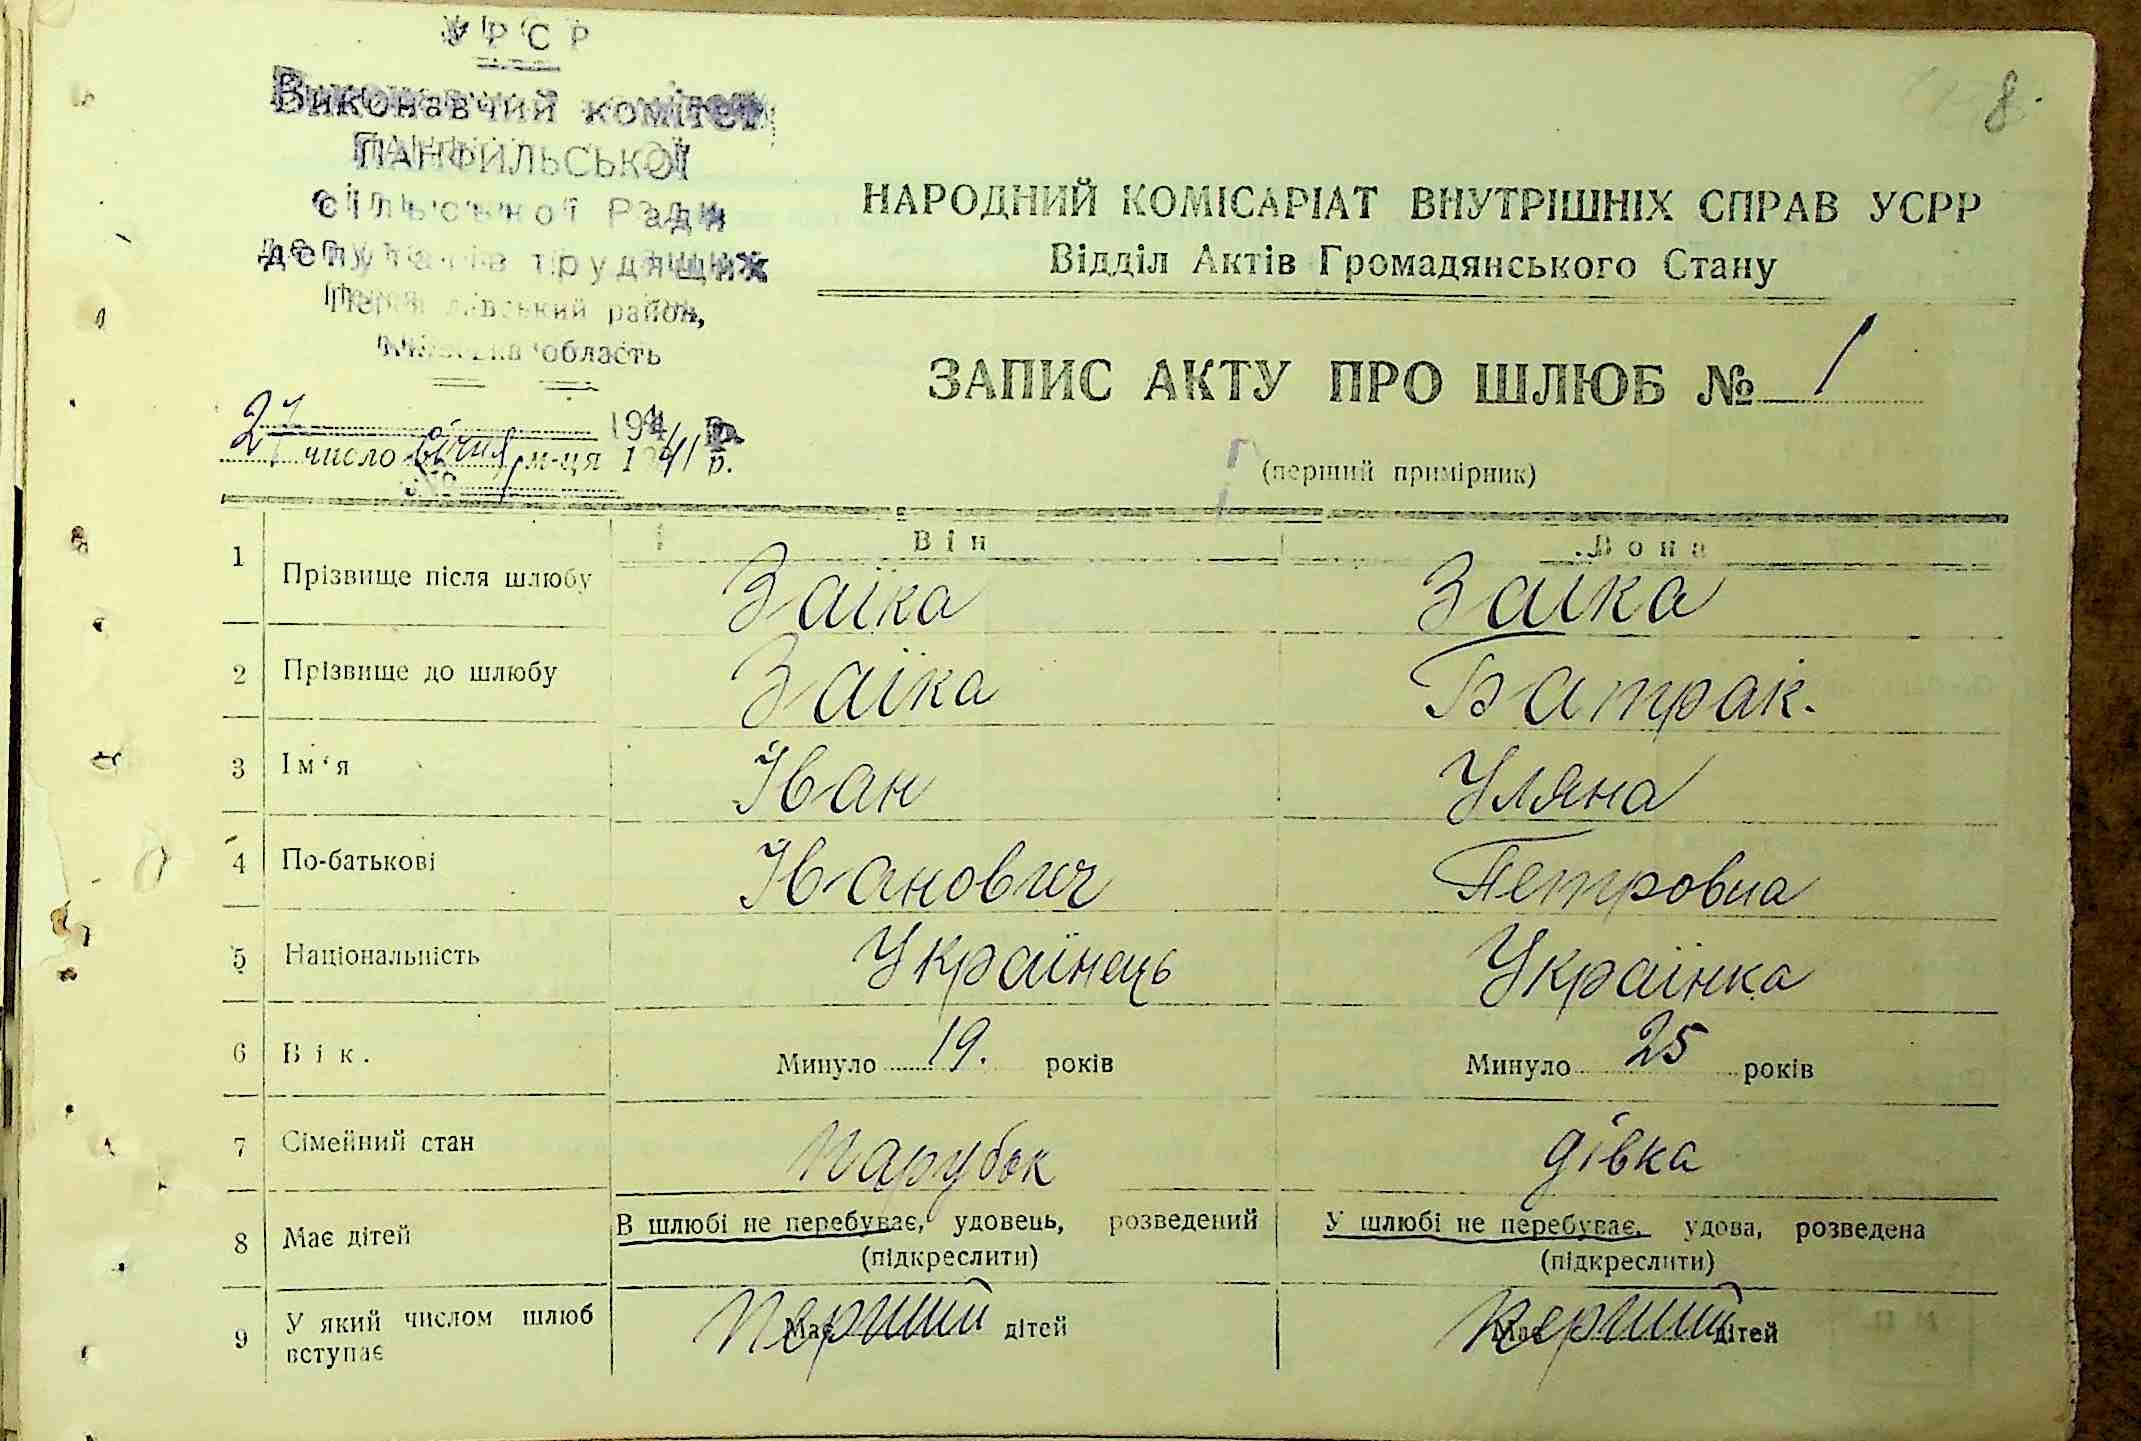 8.
УРСР
Виконавчий комітет
ПАНФИЛЬСЬКОЇ
сільської Ради
депутатів трудящих
район,
область
27 194 р.
27 число січня м-ця 1941 р.
НАРОДНИЙ КОМІСАРІАТ ВНУТРІШНІХ СПРАВ УСРР
Відділ Актів Громадянського Стану
ЗАПИС АКТУ ПРО ШЛЮБ № 1
(перший примірник)
Він Вона
1 Прізвище після шлюбу Заїка Заїка
2 Прізвище до шлюбу Заїка Батрак.
3 Ім'я Іван Уляна
4 По-батькові Іванович Петровна
5 Національність Українець Українка
6 Вік. Минуло 19. років Минуло 25 років
7 Сімейний стан парубок дівка
8 Має дітей В шлюбі не перебуває, удовець, розведений У шлюбі не перебуває, удова, розведена
(підкреслити) (підкреслити)
9 У який числом шлюб вступає Має Перший дітей Має Перший дітей